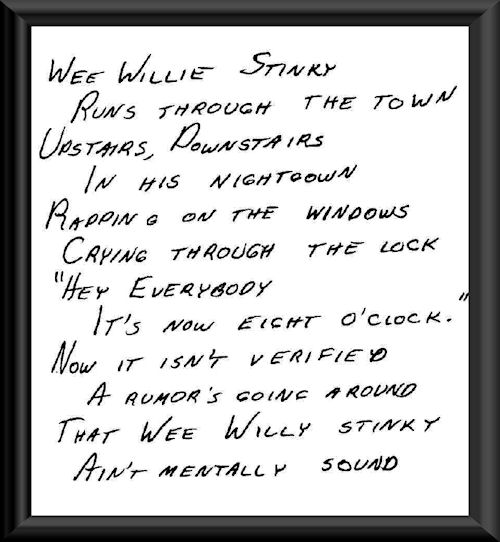 Wee Willie Stinky
Runs through the town
Upstairs, Downstairs
In his nightgown
Rapping on the windows
Crying through the lock
"Hey Everybody
It's now eight o'clock."
Now it isn't verified
A rumor's going around
That Wee Willy stinky
Ain't mentally sound